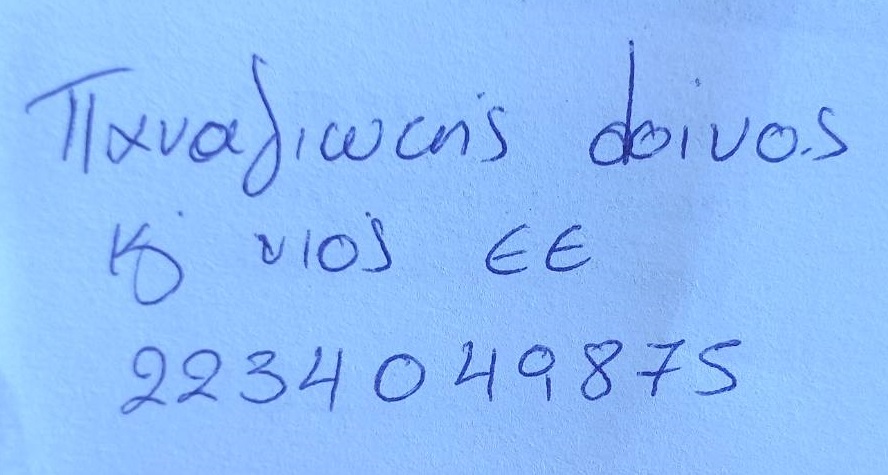 Παναγιώτης Φοίνος
Κ' υιός ΕΕ
2234049875